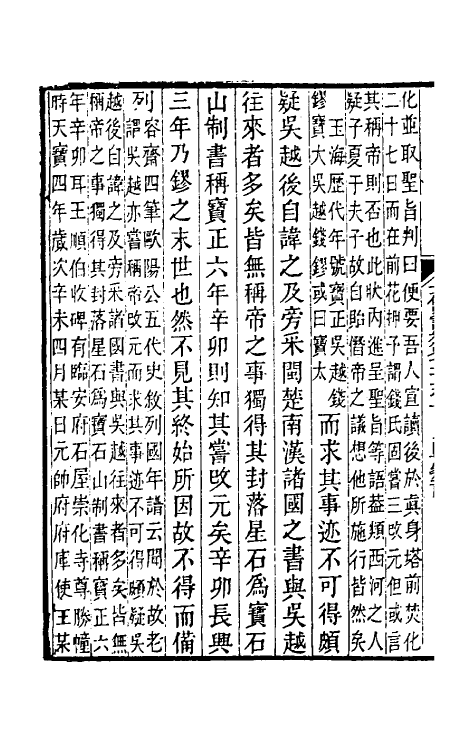 化並取聖旨判曰便要吾人宜讀後於眞身塔前焚化
二十七日而在前花押予謂錢氏固嘗三改元但或言
其稱帝則否也此狀内進呈聖旨等語葢類西河之人
疑子夏于夫子故自貽僭帝之議想他所施行皆然矣
玉海歷代年號寶正吳越錢
鏐寶大吳越錢鏐或曰寶太
而求其事迹不可得頗
疑吳越後自諱之及旁采閩楚南漢諸國之書與吳越
往來者多矣皆無稱帝之事獨得其封落星石爲寶石
山制書稱寶正六年辛卯則知其嘗改元矣辛卯長興
三年乃鏐之末世也然不見其終始所因故不得而備
列容齋四筆歐陽公五代史敘列國年譜云聞於故老
謂吳越亦嘗稱帝改元而求其事迹不可得頗疑吳
越後自諱之及旁采諸國書與吳越往來者多矣皆無
稱帝之事獨得其封落星石爲寶石山制書稱寶正六
年辛卯耳王順伯收碑有臨安府石屋崇化寺尊勝幢
時天寶四年歲次辛未四月某日元帥府府庫使王某